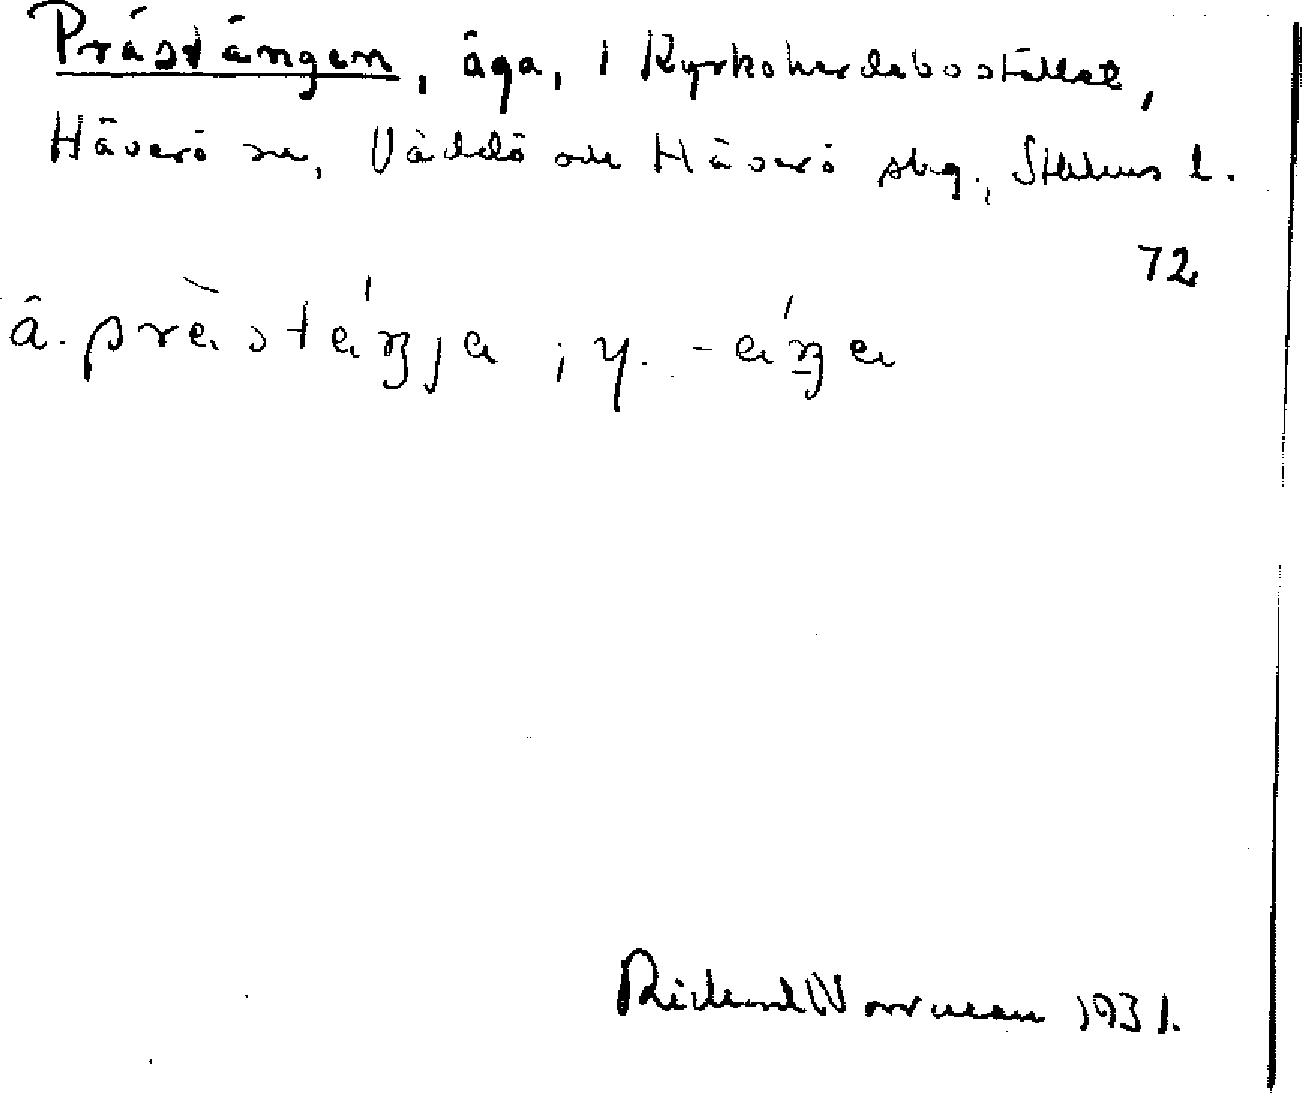 Prästängen, äga, i Kyrkoherdebostället,
Häverö sn, Väddö och Häverö skg., Sthlms l.
72
ä. præstæŋja ; y. -æŋa
Richard Norrman 1931.